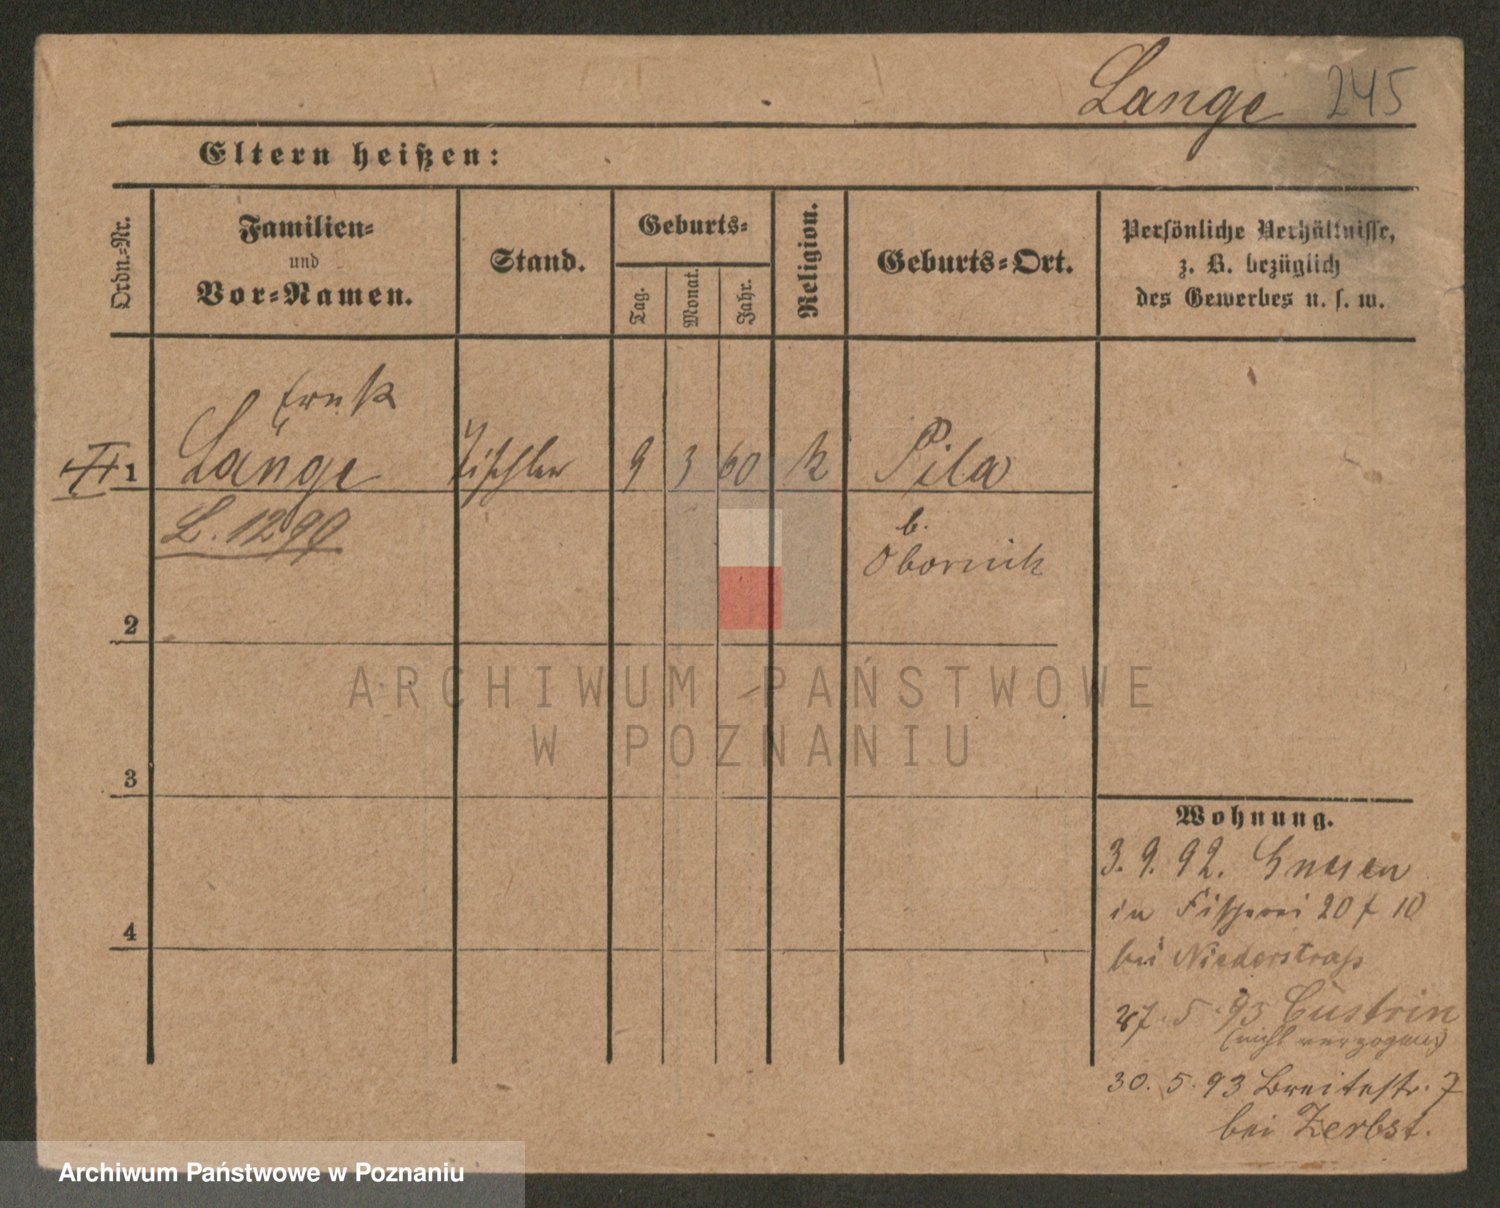 Lange 245
Eltern heißen:
Ordn.-Nr.
Familien-
und
Vor-Namen.
Stand.
Geburts-
Tag.
Monat.
Jahr.
Religion.
Geburts-Ort.
Persönliche Verhältnisse,
z. B. bezüglich
des Gewerbes u. s. w.
Ernst
1 Lange Tischler 9 3 60 K Pila
L. 1290
b.
Obornik
2
ARCHIWUM PAŃSTWOWE
W POZNANIU
3
4
Wohnung.
3. 9. 92. Gnesen
in Fischerei 20 f 10
bei Niederstraß
27. 5. 93 Cüstrin
(nicht verzogen)
30. 5. 93 Breitestr. 7
bei Zerbst.
Archiwum Państwowe w Poznaniu